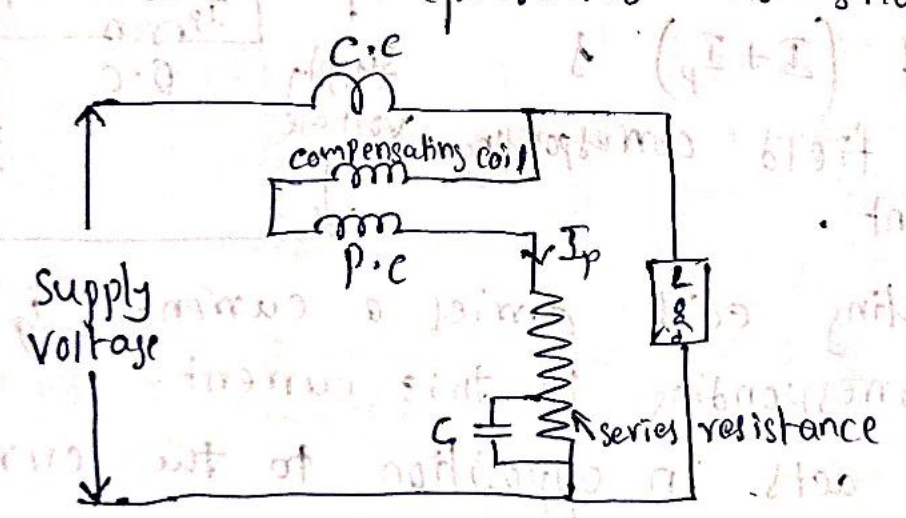 C.C
compensating coil
P.C
Ip
Supply
voltage
L
C
series resistance